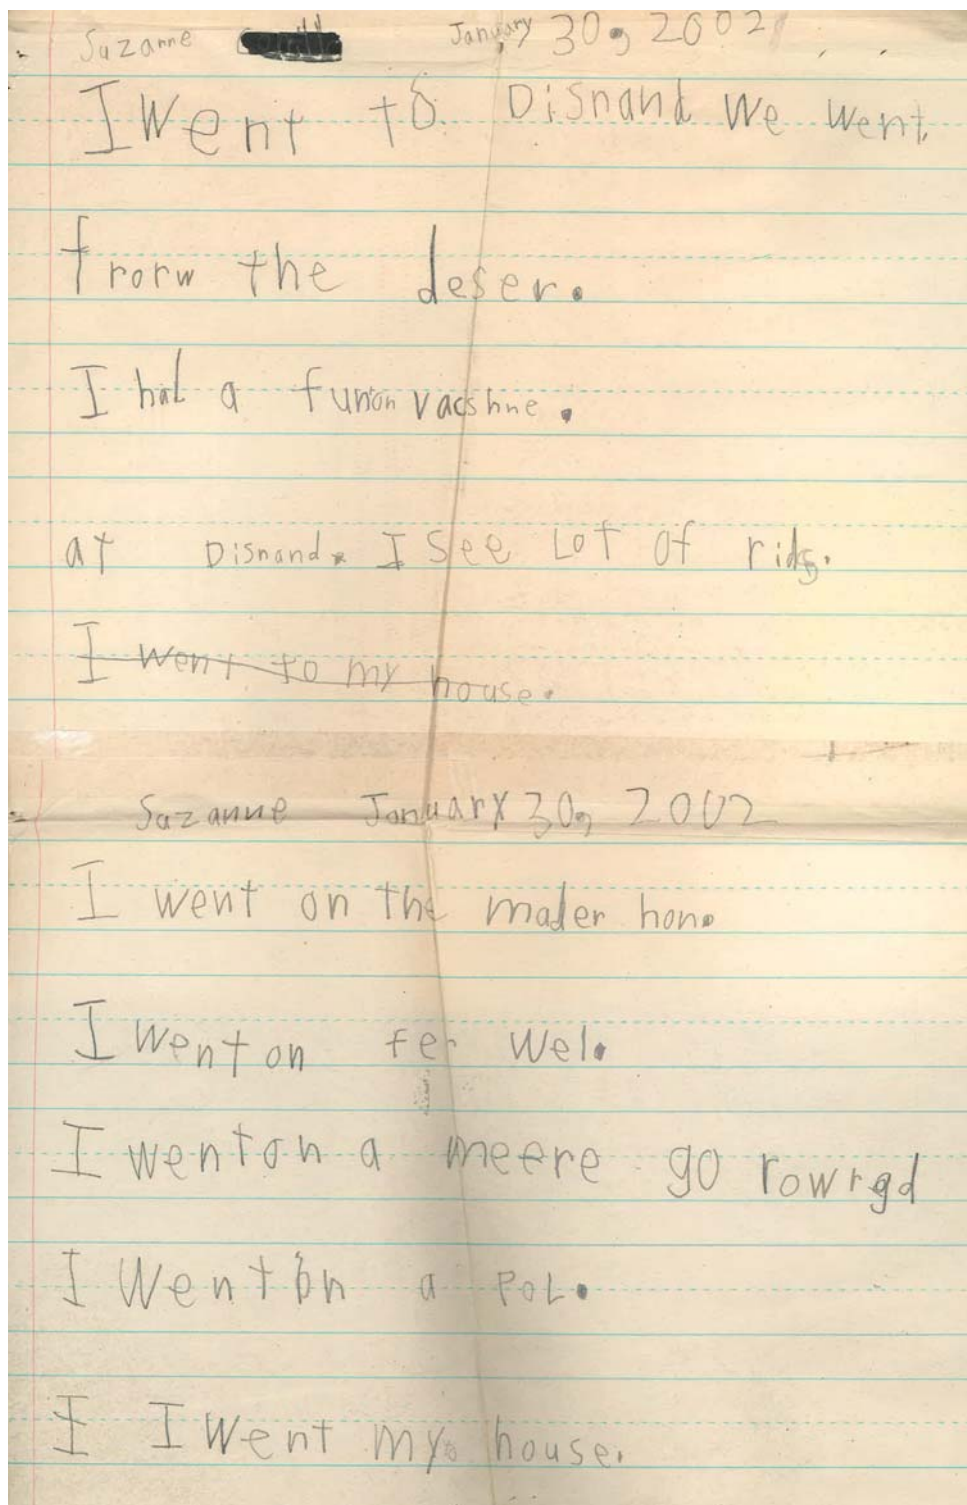 Suzanne January 30, 2002
I Went to Disnand We went
frorw the deser.
I had a funon vacshne.
at Disnand. I see Lot of rids.
I went to my house.
Suzanne January 30, 2002
I went on the mader hon.
I went on fer wel.
I went on a meere go rowrgd
I Went on a poL.
I I went my house.